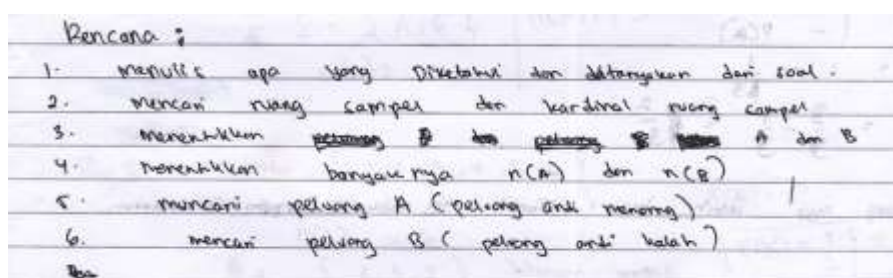 Rencana :
1. menulis apa yang Diketahui dan ditanyakan dari soal.
2. mencari ruang sampel dan kardinal ruang sampel
3. menentukkan A dan B
4. menentukkan banyak nya n(A) dan n(B)
5. mencari peluang A (peluang andi menang)
6. mencari peluang B (peluang andi kalah)